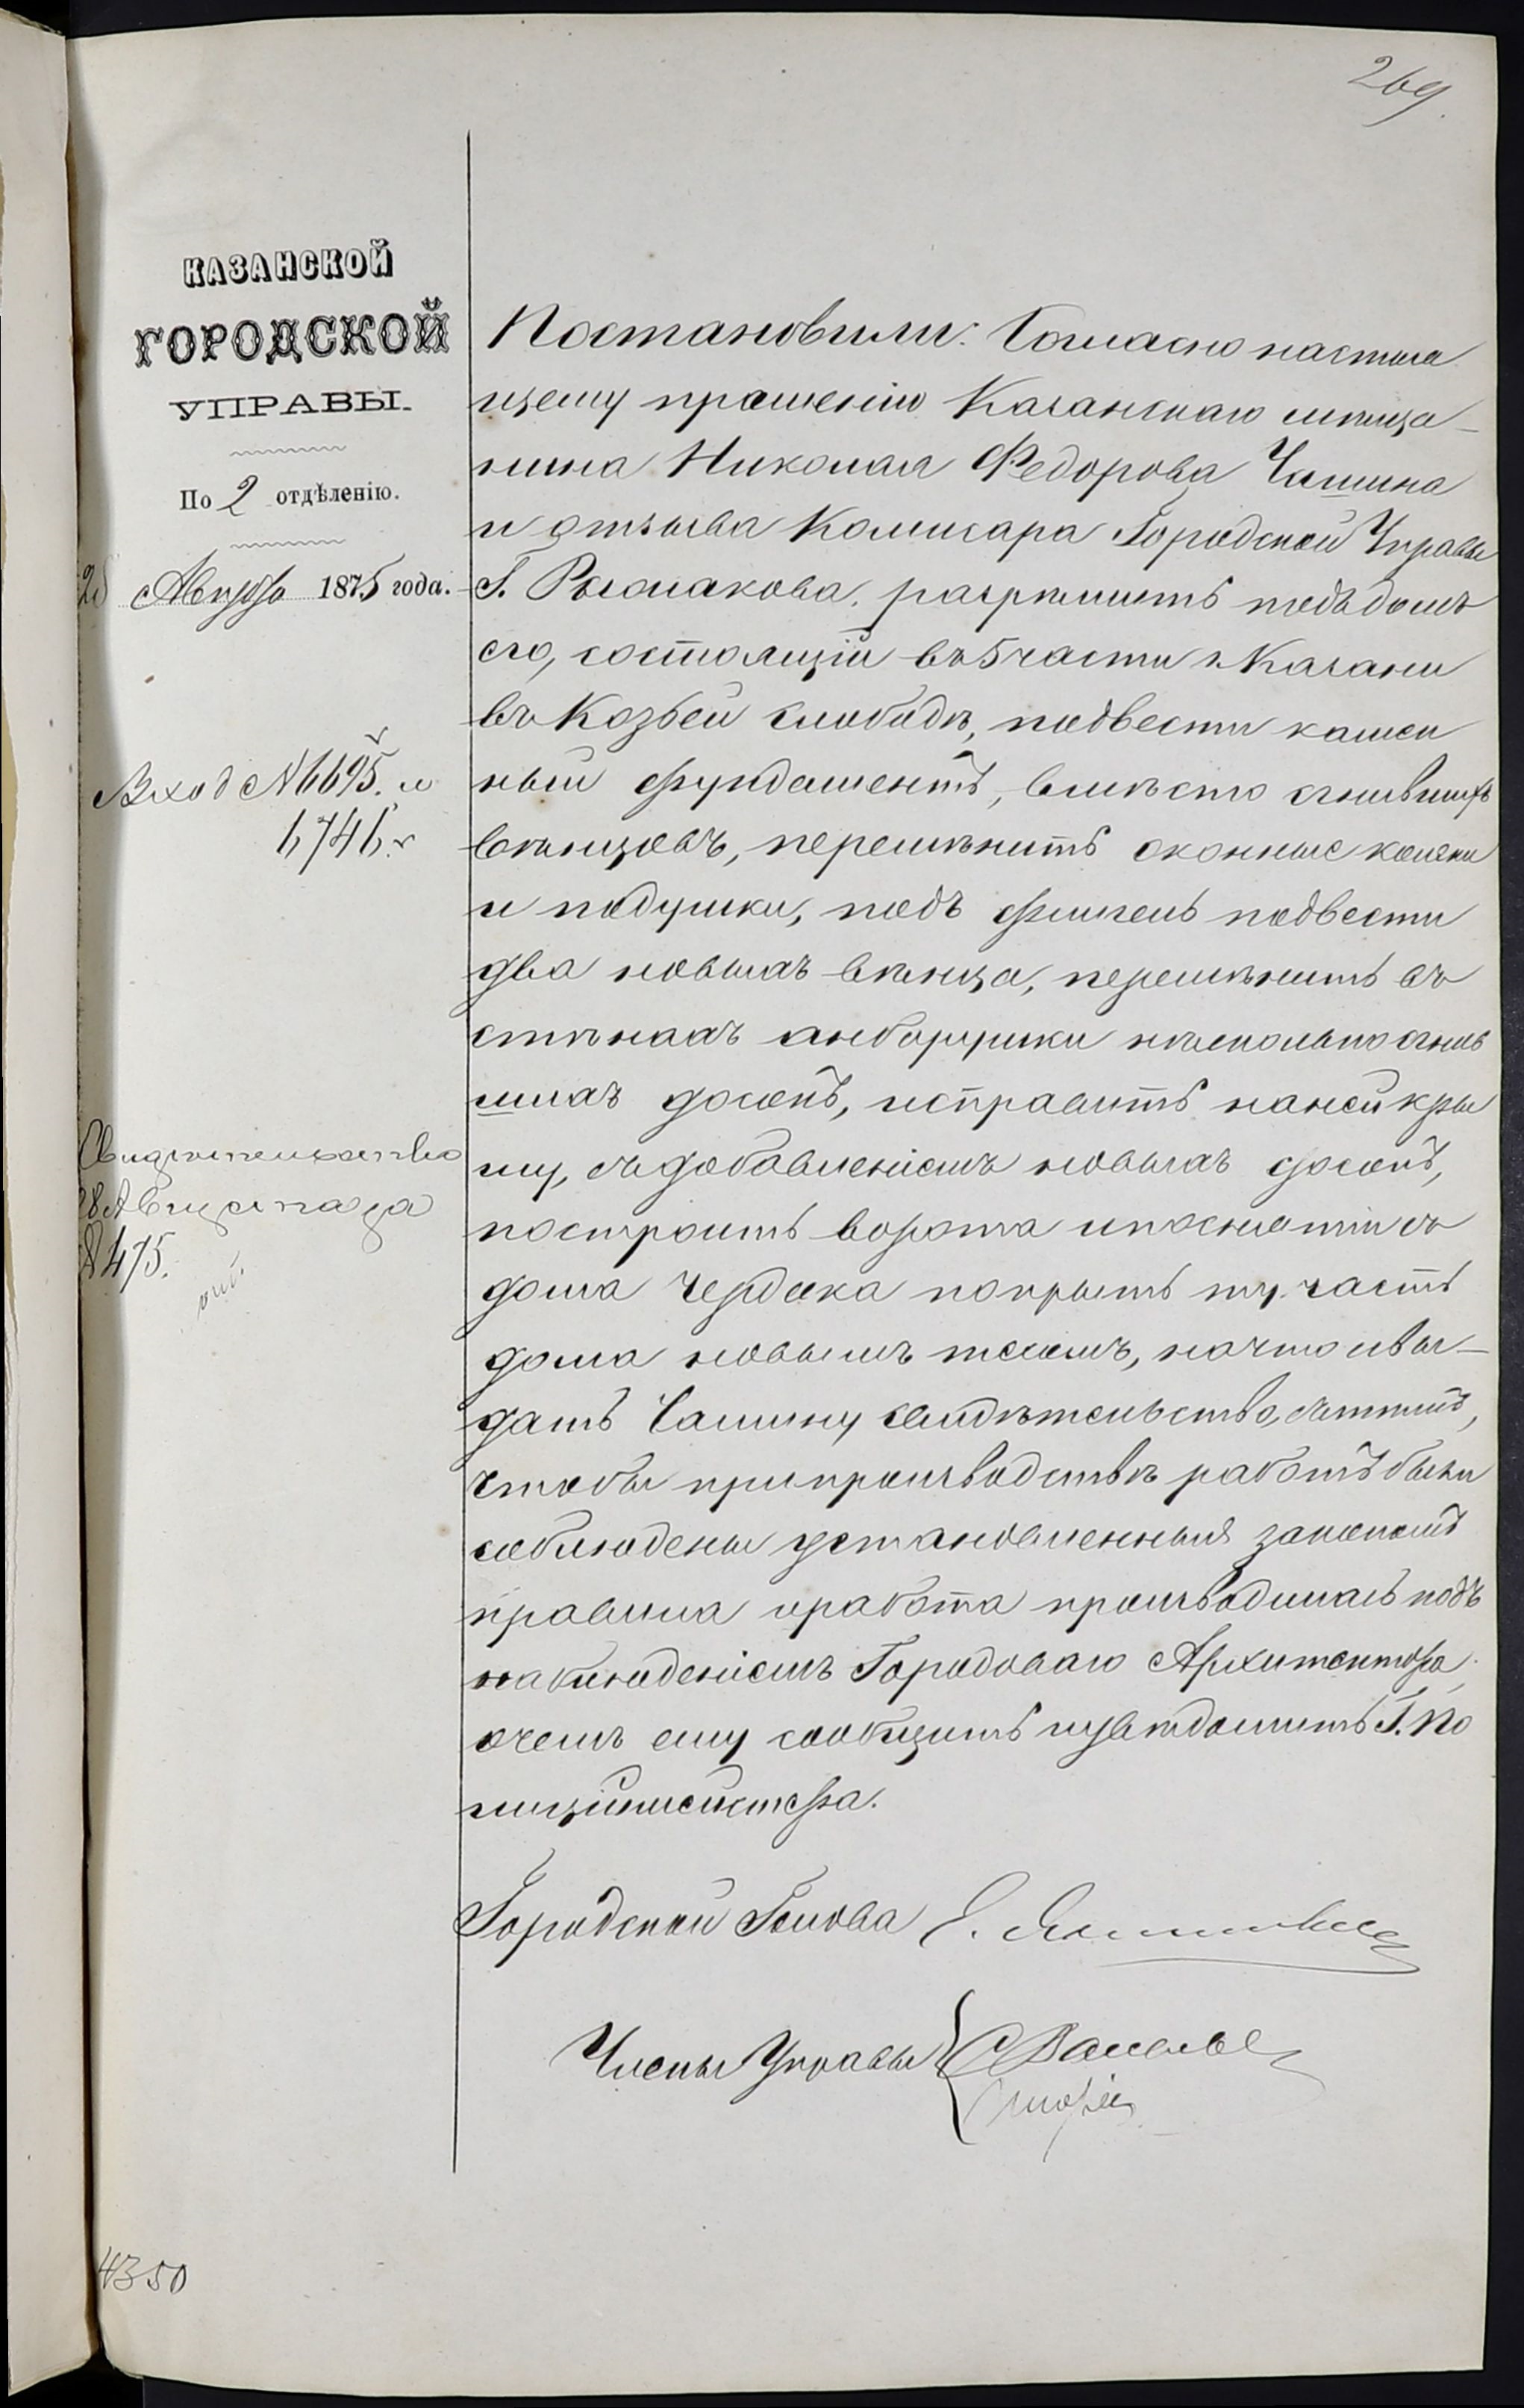 269.
КАЗАНСКОЙ
ГОРОДСКОЙ
УПРАВЫ.
По 2 отдѣленію.
Августа 1875 года.
Вход № 6695. и
6746.
Свидѣтельство
28 Августа за
8475.
4350
Постановили: Согласно настоя
щему прошенію Казанскаго мѣща-
нина Николая Федорова Чашина
и отзыва Комисара Городской Управы
Г. разрѣшить подъ домъ
его, состоящій въ 5 части г. Казани
въ Козьей слободѣ, подвести камен
ный фундаментъ, вмѣсто сгнившихъ
вѣнцовъ, перемѣнить оконные косяки
и подушки, подъ флигель подвести
два новыхъ вѣнца, перемѣнить въ
стѣнахъ анбарушки нѣсколько сгнив
шихъ досокъ, исправить на ней кры
шу, съ добавленіемъ новыхъ досокъ,
построить ворота и по снятіи съ
дома чердака покрыть ту часть
дома новымъ тесомъ, на что и вы-
дать Чашину свидѣтельство, съ тѣмъ,
чтобы при производствѣ работъ были
соблюдены установленныя закономъ
правила и работа производилась подъ
наблюденіемъ Городоваго Архитектора,
о чемъ ему сообщить и увѣдомить Г. По
лиціймейстера.
Городской Голова
Члены Управы